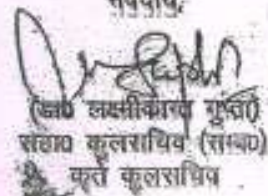 भवदीय,
(डा० लक्ष्मीकान्त गुप्ता)
सहा० कुलसचिव (सम्ब०)
कृते कुलसचिव